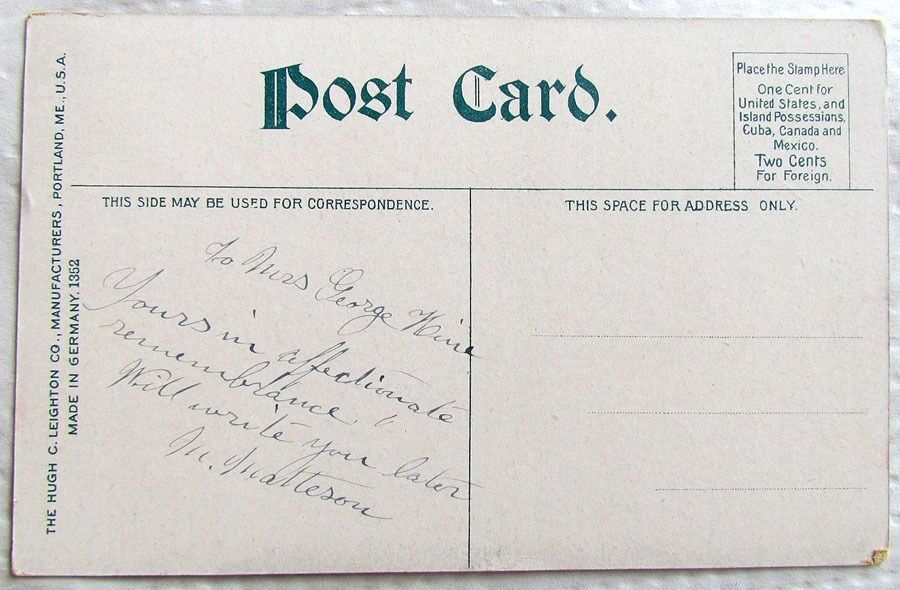 Post Card.
Place the Stamp Here
One Cent for
United States, and
Island Possessions,
Cuba, Canada and
Mexico.
Two Cents
For Foreign.
THE HUGH C. LEIGHTON CO., MANUFACTURERS, PORTLAND, ME., U.S.A.
MADE IN GERMANY. 1352
THIS SIDE MAY BE USED FOR CORRESPONDENCE.
To Mrs George Hine
Yours in affectionate
remembrance.
Will write you later
M. Matteson
THIS SPACE FOR ADDRESS ONLY.